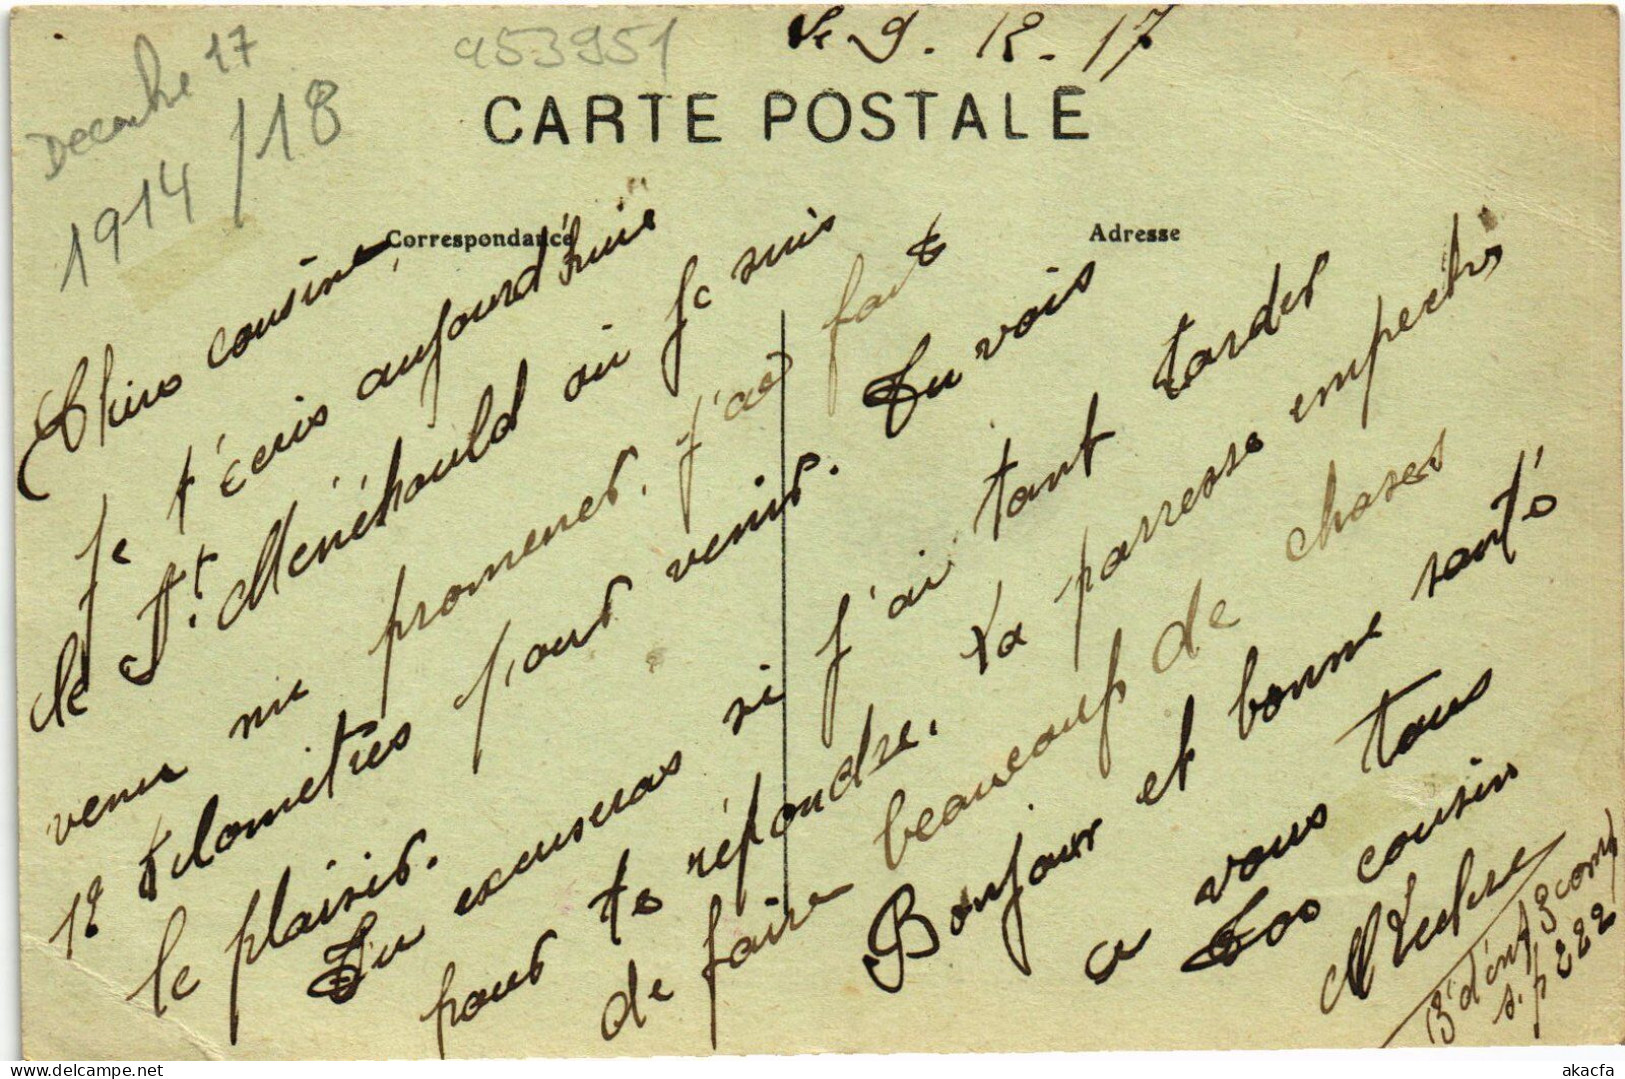 Decembre 17
1914/18
953951
Le 9. 12. 17
CARTE POSTALE
Correspondance
Adresse
Chère cousine
Je t'écris aujourd'huie
de St. Ménéhould ou je suis
venu me promener. j'ai fait
12 kilomètres pour venir. Tu vois
le plaisir.
Tu excuseras si j'ai tant tarder
pour te répondre. ta parresse empeche
de faire beaucoup de choses
Bonjour et bonne santé
a vous tous
Ton cousin
3e d'inf 3 comp
s. p 222
akacfa